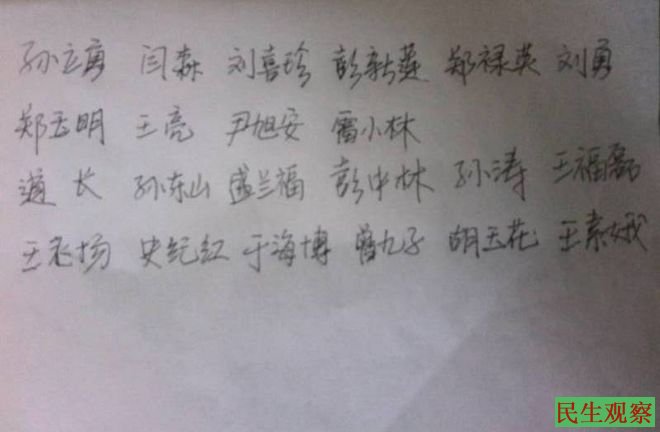 孙立勇 闫森 刘喜珍 彭新莲 郑禄英 刘勇
郑玉明 王亮 尹旭安 雷小林
道长 孙东山 盛兰福 彭中林 孙涛 王福磊
王飞扬 史纪红 于海博 曾九子 胡玉花 王素娥
民生观察